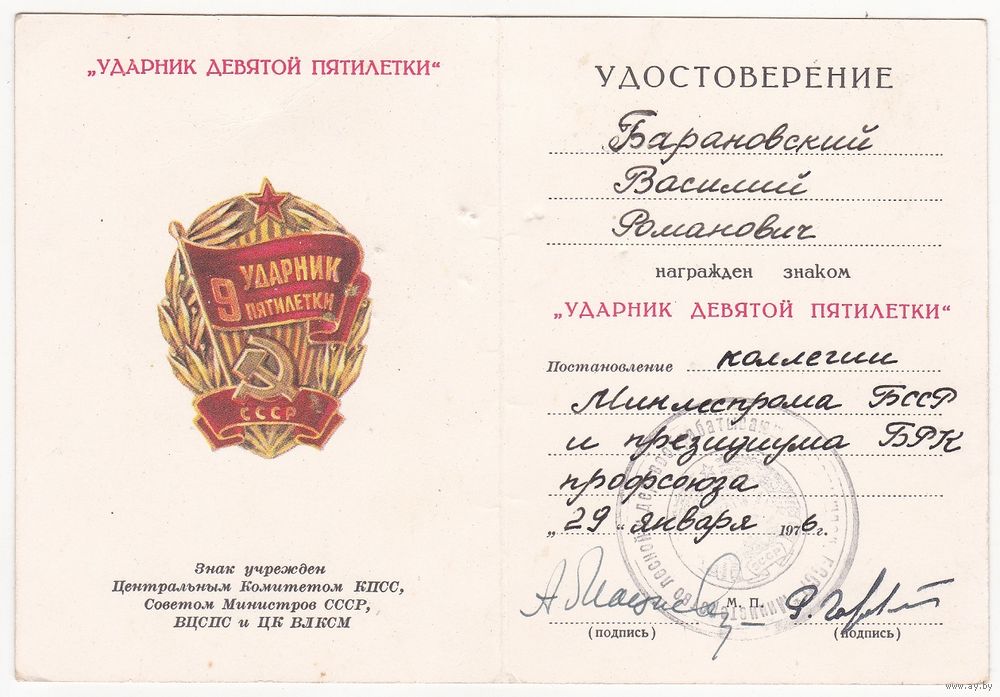 „УДАРНИК ДЕВЯТОЙ ПЯТИЛЕТКИ“
9 УДАРНИК
ПЯТИЛЕТКИ
СССР
Знак учрежден
Центральным Комитетом КПСС,
Советом Министров СССР,
ВЦСПС и ЦК ВЛКСМ
УДОСТОВЕРЕНИЕ
Барановский
Василий
Романович
награжден знаком
„УДАРНИК ДЕВЯТОЙ ПЯТИЛЕТКИ“
Постановление коллегии
Минлеспрома БССР
и президиума БРК
профсоюза
„29“ января 1976 г.
М. П.
(подпись) (подпись)
www.ay.by